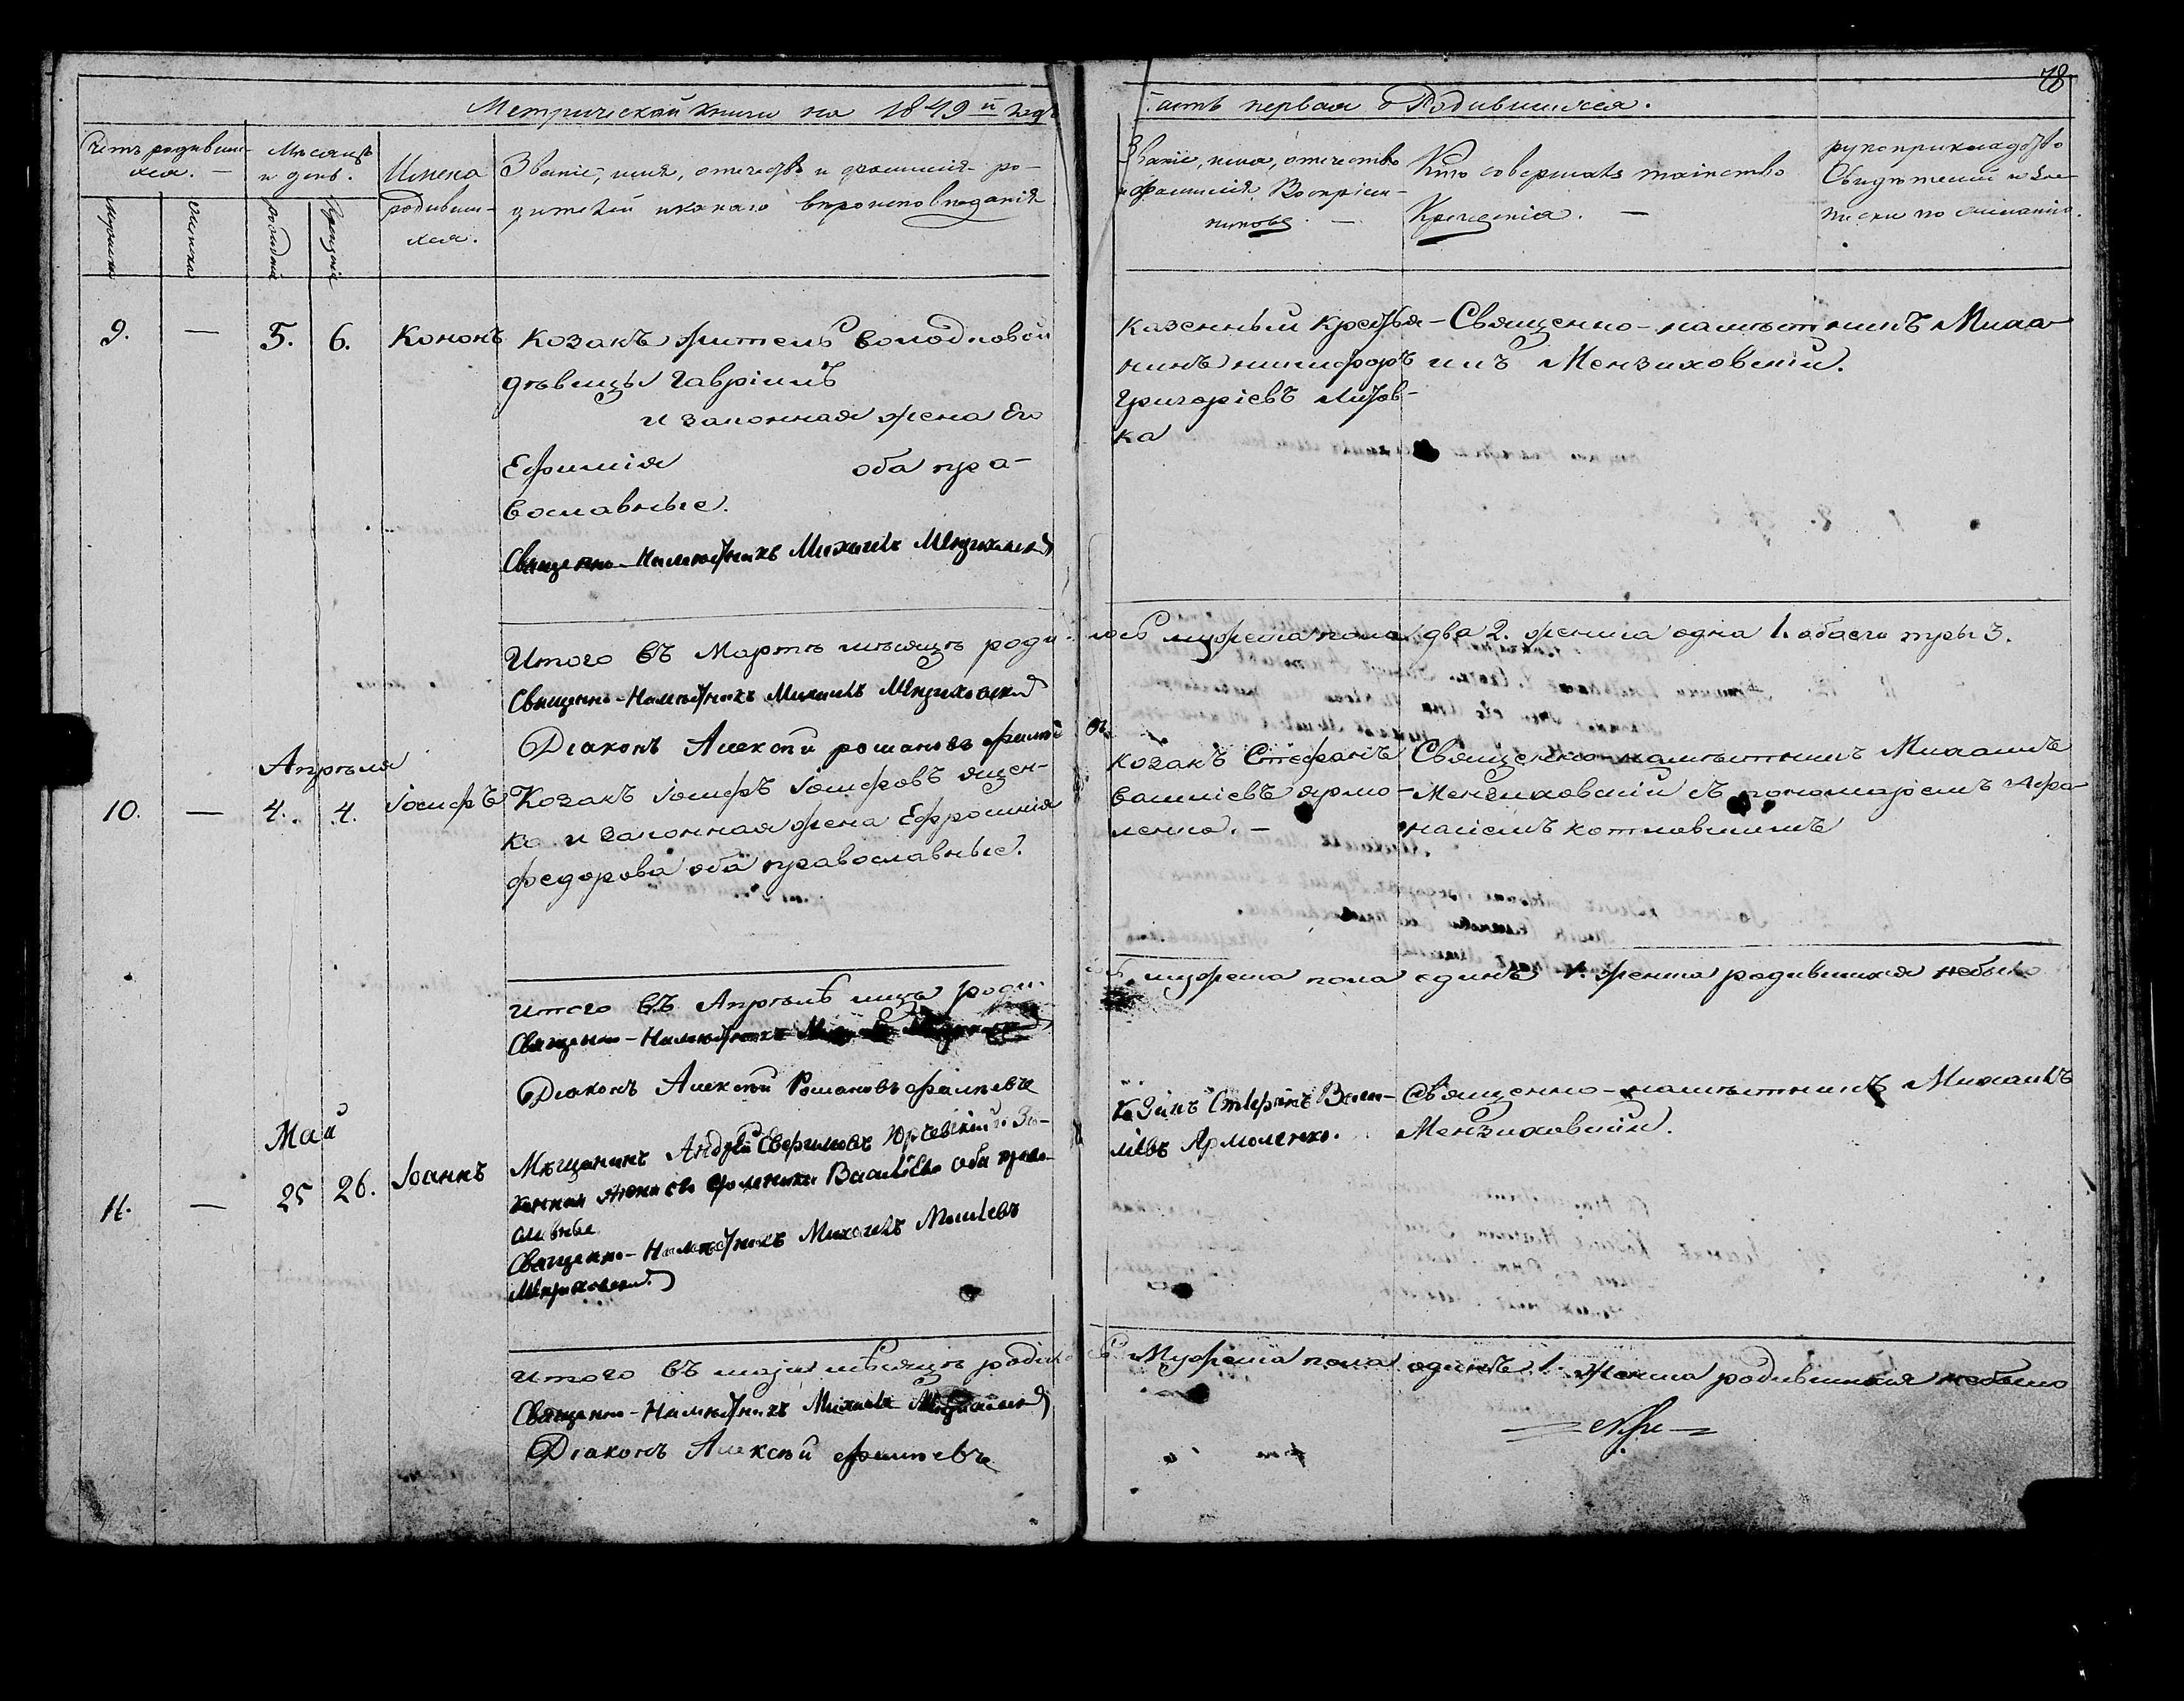 78
Метрической книги на 1849й годъ
Часть первая о Родившихся.
Счетъ родивших-
ся. —
Мѣсяцъ
и день.
Имена
родивших-
ся.
Званіе, имя, отечество и фамилія ро-
дителей и какого вѣроисповѣданія
мужска
женска
рожденія
крещенія
Званіе, имя, отечество
и фамилія Воспріем-
никовъ. —
Кто совершалъ таинство
Крещенія. —
рукоприкладство
Свидѣтелей
по желанію.
9. — 5. 6. Кононъ
Козакъ житель володковой
дѣвицы Гавріилъ
и законная жена Его
Ефимія оба пра-
вославные.
Священно-Намѣстникъ Михаилъ Мензиховскій
Казенный Кресья-
нинъ никифоръ
Григоріевъ Литов-
ка
Священно-намѣстникъ Миха-
илъ Мензиховскій.
Итого въ Мартѣ мѣсяцѣ роди-лось мужеска пола два 2. женска одна 1. обоего три 3.
Священно-Намѣстникъ Михаилъ Мензиховскій
Діаконъ Алексѣй романовъ
Апрѣля
10. — 4. 4. Іосифъ
Козакъ Іосифъ Іосифовъ ящен-
ко и законная жена Ефросинія
федорова оба православные.
козакъ Стефанъ
василіевъ ярмо-
ленко. —
Священно-намѣстникъ Михаилъ
Мензиховскій съ пономаремъ Афа-
насіемъ котлевскимъ
итого въ Апрѣлѣ мцѣ роди-лось мужеска пола единъ 1. женска родившихся небыло
Священно-Намѣстникъ
Діаконъ Алексѣй Романовъ
Май
11. — 25 26. Іоаннъ
Мѣщанинъ Андрей Юрчевскій и За-
конная жена его Васильева оба право-
славные
Священно-Намѣстникъ Михаилъ
Мензиховскій
Козакъ Стефанъ Васи-
ліевъ Ярмоленко.
Священно-намѣстникъ Михаилъ
Мензиховскій.
итого въ маіи мѣсяцѣ родилось Мужеска пола одинъ 1. Женска родившихся небыло
Священно-Намѣстникъ Михаилъ
Діаконъ Алексѣй